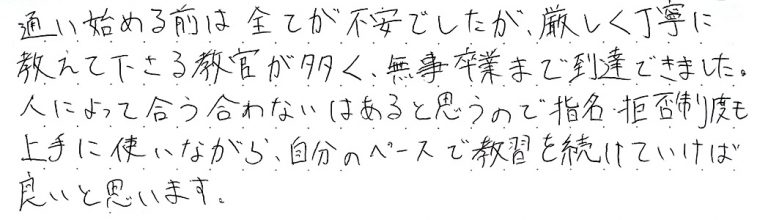 通い始める前は全てが不安でしたが、厳しく丁寧に
教えて下さる教官が多く、無事卒業まで到達できました。
人によって合う合わないはあると思うので指名・拒否制度も
上手に使いながら、自分のペースで教習を続けていけば
良いと思います。